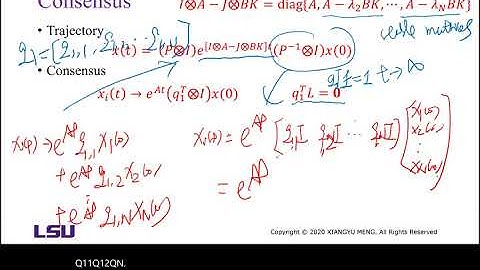 Consensus
I⊗A − J⊗BK = diag{A, A−λ₂BK, ⋯, A−λ_N BK}
stable matrices
• Trajectory
q₁ = [q₁,₁ q₁,₂ ⋯ q₁,N]
x(t) = (P⊗I)e^{[I⊗A−J⊗BK]t}(P⁻¹⊗I)x(0)
• Consensus
t → ∞
x_i(t) → e^{At}(q₁ᵀ⊗I)x(0) q₁ᵀL = 0
x_i(t) → e^{At} q₁,₁ x₁(0)
+ e^{At} q₁,₂ x₂(0)
⋮
+ e^{At} q₁,N x_N(0)
x_i(t) = e^{At} [q₁,₁I q₁,₂I ⋯ q₁,NI] [x₁(0) x₂(0) ⋮ x_N(0)]
= e^{At}
LSU
Copyright © 2020 XIANGYU MENG, All Rights Reserved
Q11Q12QN.